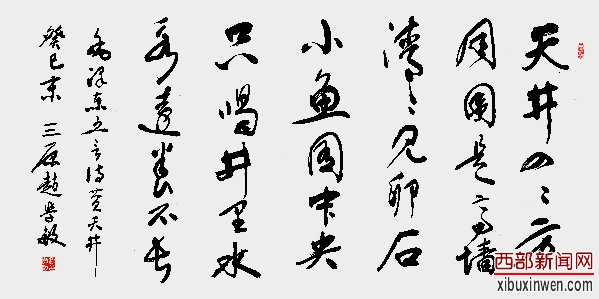 天井四々方
周围是高墙
清々见卵石
小鱼囿中央
只喝井里水
永远养不长
毛泽东五言诗赞天井
癸巳末 三原趙学敏
西部新闻网
xibuxinwen.com